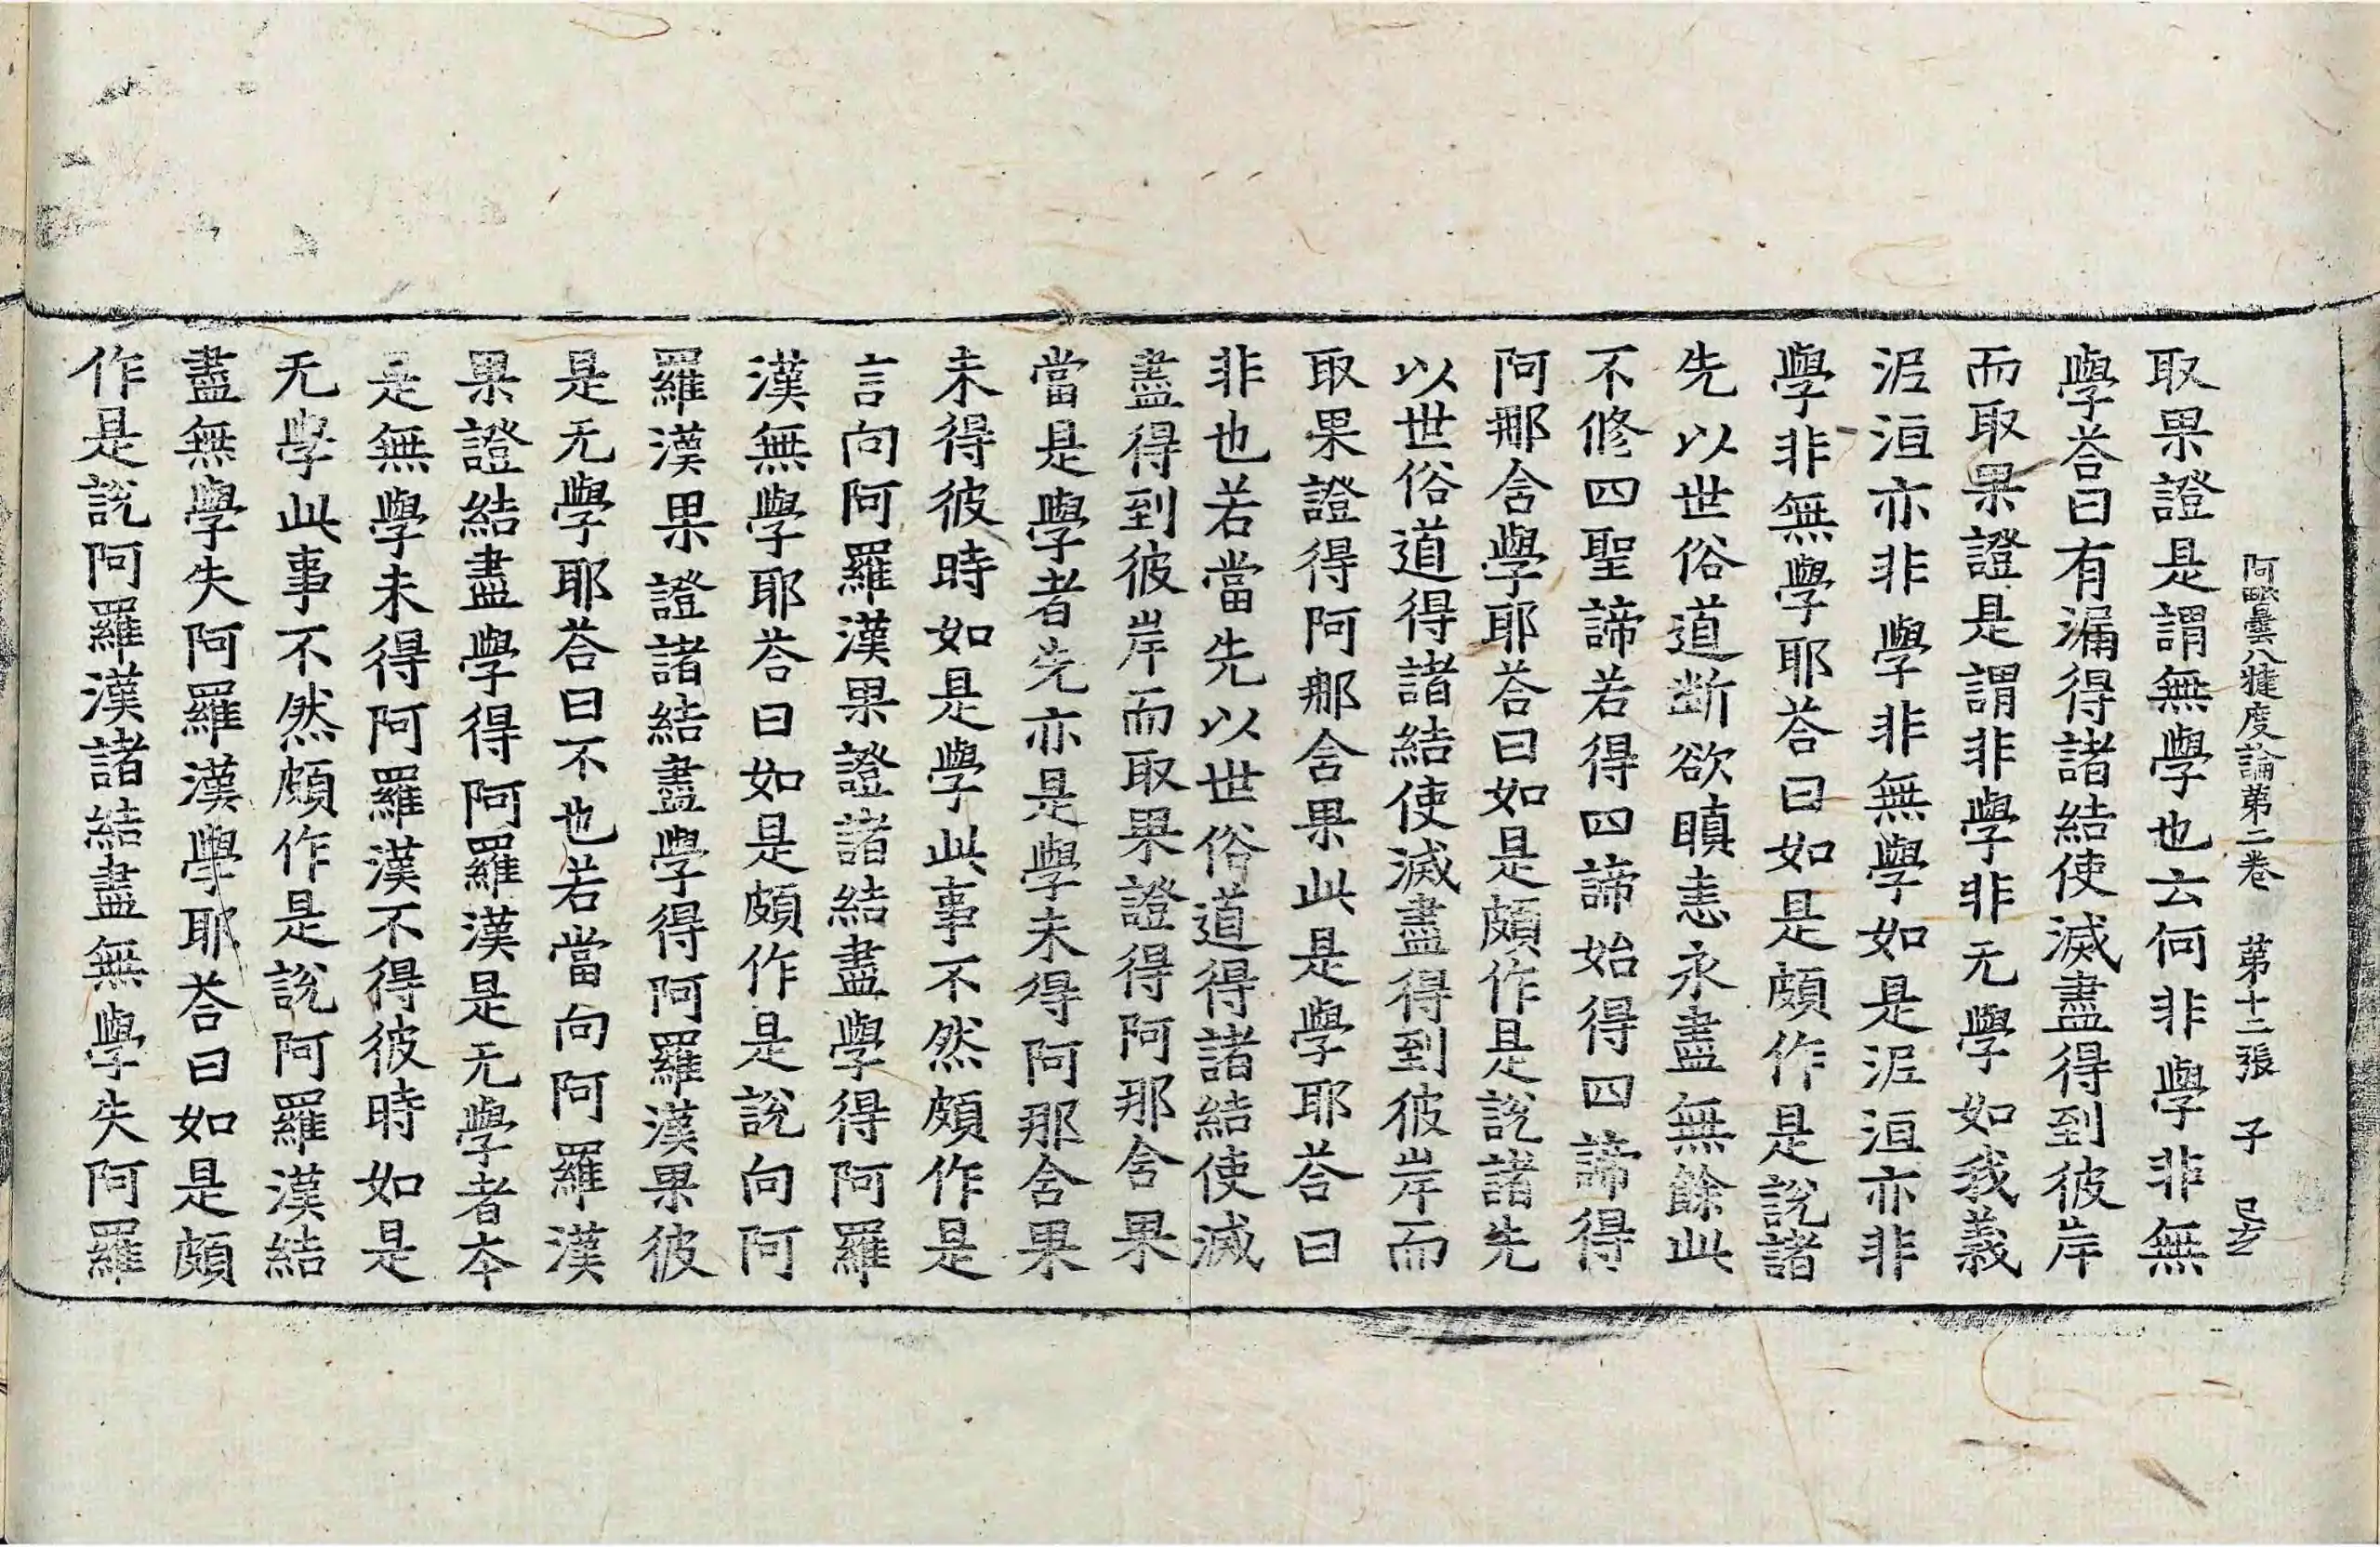 阿毗曇八犍度論第二卷 第十二張 子
取果證是謂無學也云何非學非無
學荅曰有漏得諸結使滅盡得到彼岸
而取果證是謂非學非无學如我義
泥洹亦非學非無學如是泥洹亦非
學非無學耶荅曰如是頗作是說諸
先以世俗道断欲瞋恚永盡無餘此
不修四聖諦若得四諦始得四諦得
阿那舍學耶荅曰如是頗作是說諸先
以世俗道得諸結使滅盡得到彼岸而
取果證得阿那舍果此是學耶荅曰
非也若當先以世俗道得諸結使滅
盡得到彼岸而取果證得阿那舍果
當是學者先亦是學未得阿那舍果
未得彼時如是學此事不然頗作是
言向阿羅漢果證諸結盡學得阿羅
漢無學耶荅曰如是頗作是說向阿
羅漢果證諸結盡學得阿羅漢果彼
是无學耶荅曰不也若當向阿羅漢
果證結盡學得阿羅漢是无學者本
是無學未得阿羅漢不得彼時如是
无學此事不然頗作是說阿羅漢結
盡無學失阿羅漢學耶荅曰如是頗
作是說阿羅漢諸結盡無學失阿羅